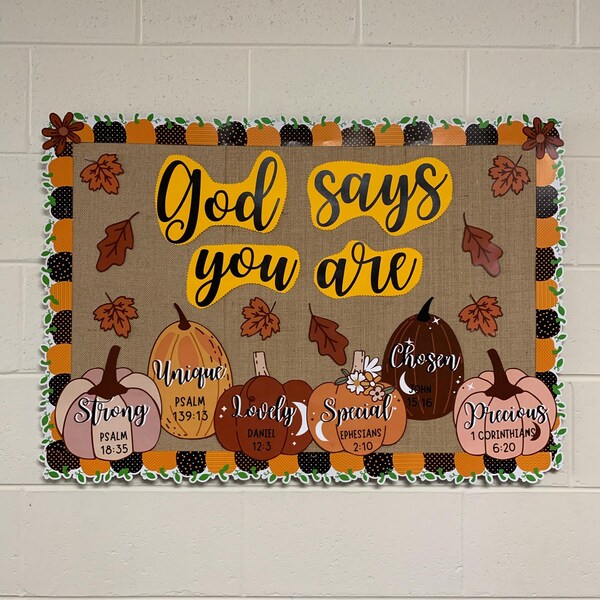 God says
you are
Strong
PSALM
18:35
Unique
PSALM
139:13
Lovely
DANIEL
12:3
Special
EPHESIANS
2:10
Chosen
JOHN
15:16
Precious
1 CORINTHIANS
6:20